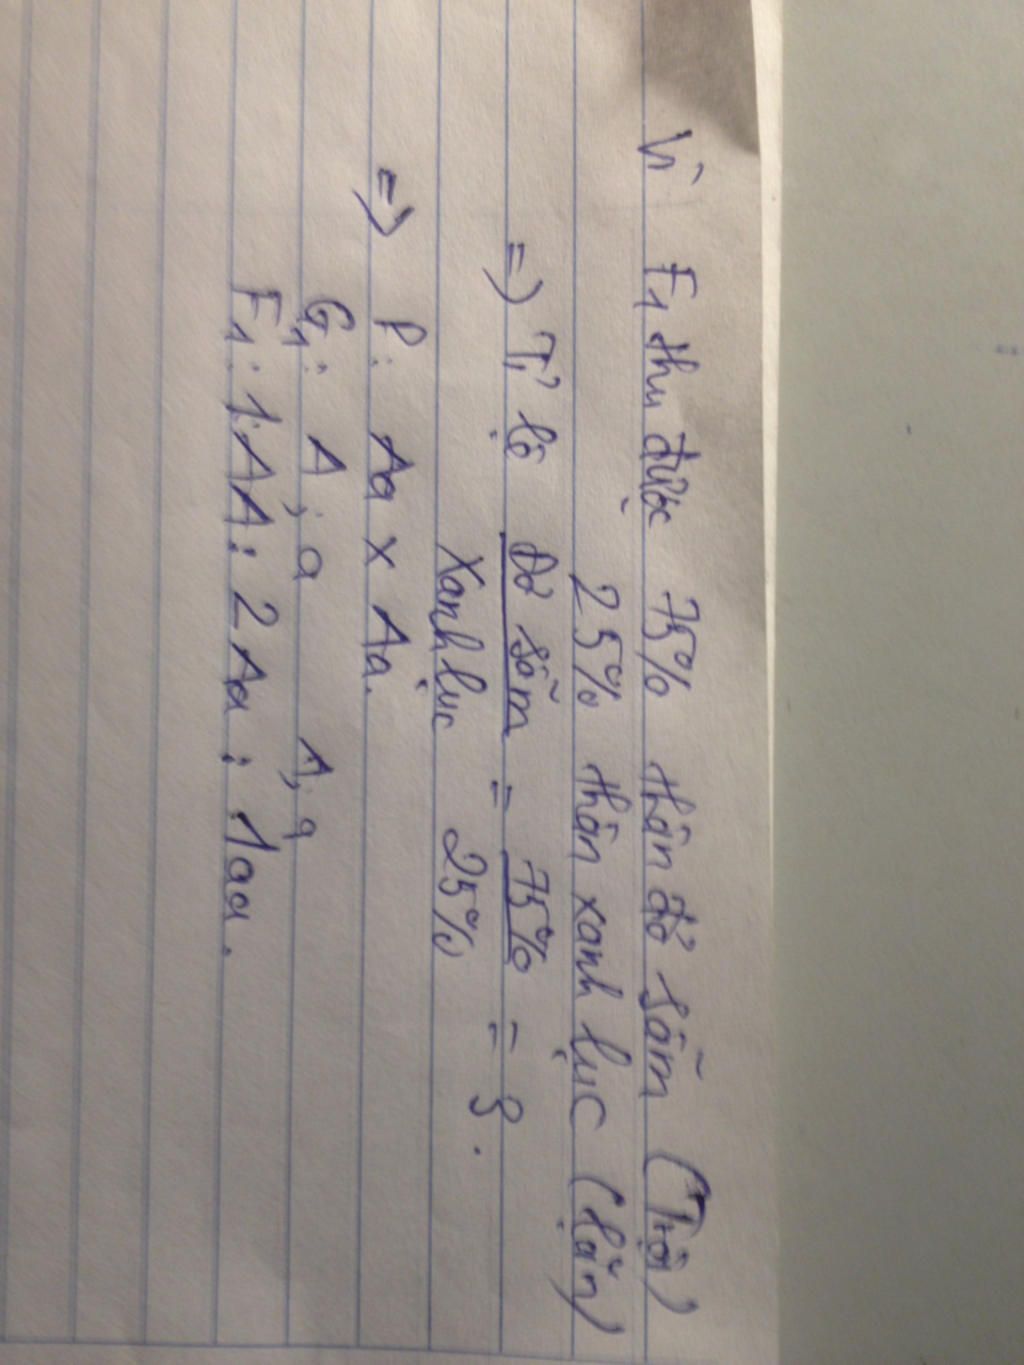 Vì F1 thu được 75% thân đỏ sẫm (Trội)
25% thân xanh lục (lặn)
=) Tỉ lệ Đỏ sẫm = 75% = 3.
Xanh lục 25%
=) P: Aa x Aa.
G1: A; a A, a
F1: 1AA: 2Aa: 1aa.